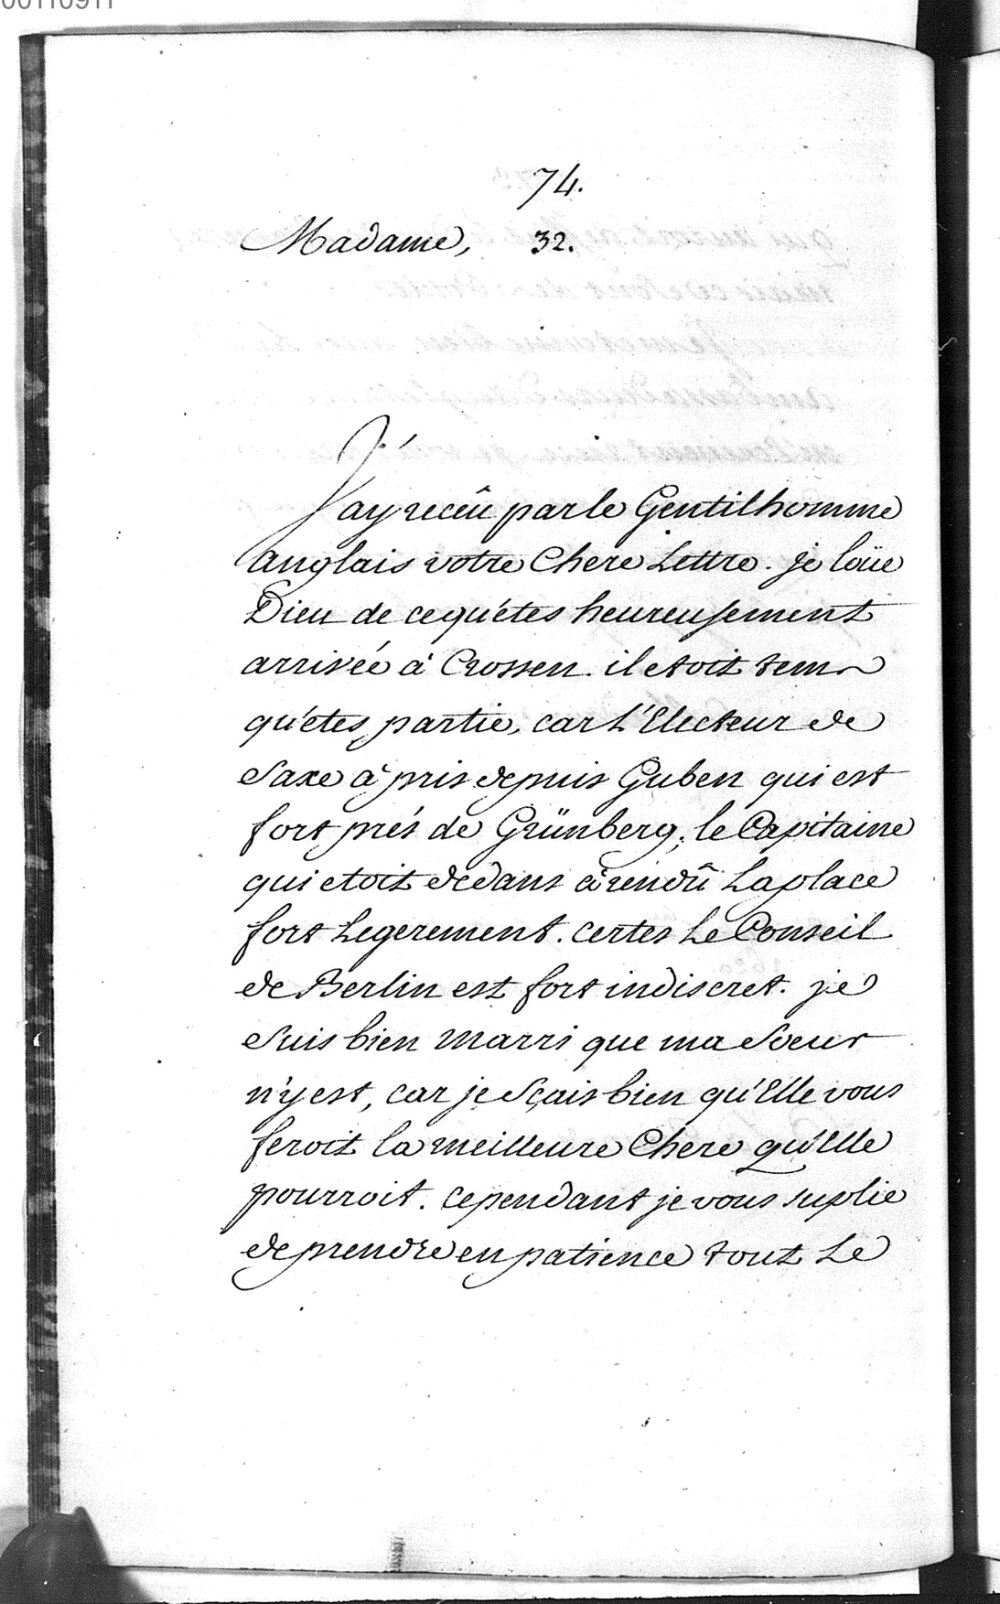 00110911
74.
Madame, 32.
J'ay reçeû par le Gentilhomme
anglais votre Chere Lettre. je loüe
Dieu de ce qu'étes heureusement
arrivée à Crossen. il etoit tems
qu'étes partie, car L'Electeur de
Saxe à pris depuis Guben qui est
fort prés de Grünberg, le Capitaine
qui etoit dedans à rendû La place
fort Legerement. certes Le Conseil
de Berlin est fort indiscret. je
suis bien marri que ma Soeur
n'y est, car je sçais bien qu'Elle vous
feroit la meilleure Chere qu'Elle
pourroit. cependant je vous suplie
de prendre en patience tout Le